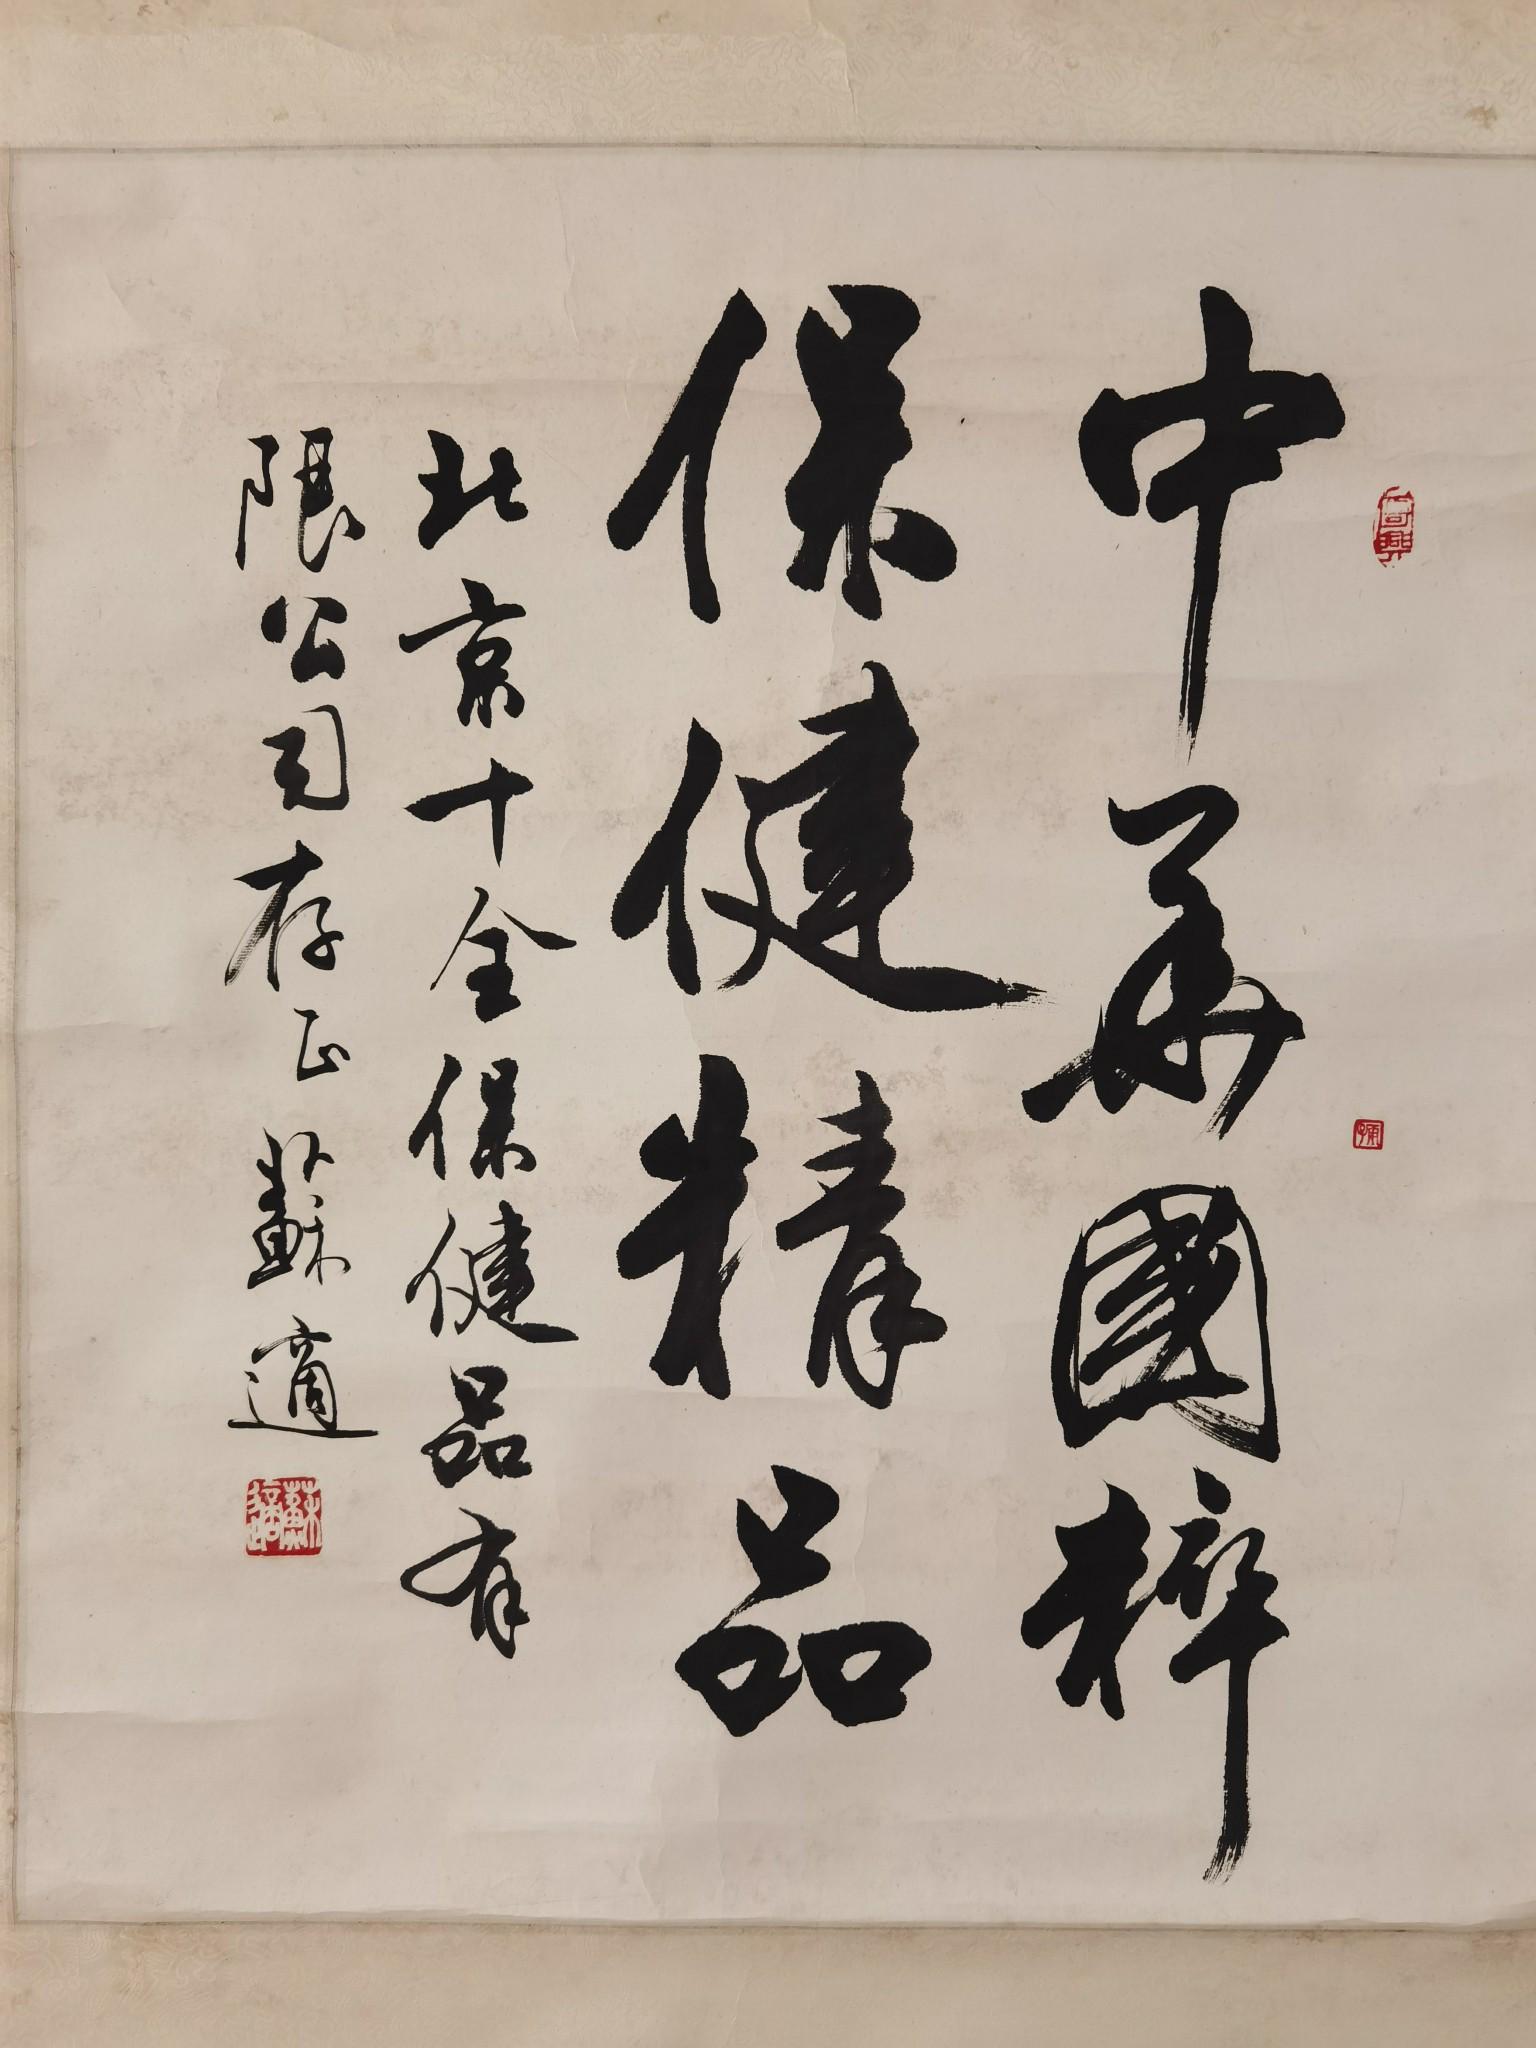 中華國粹
保健精品
北京十全保健品有
限公司存正 蘇適
蘇適